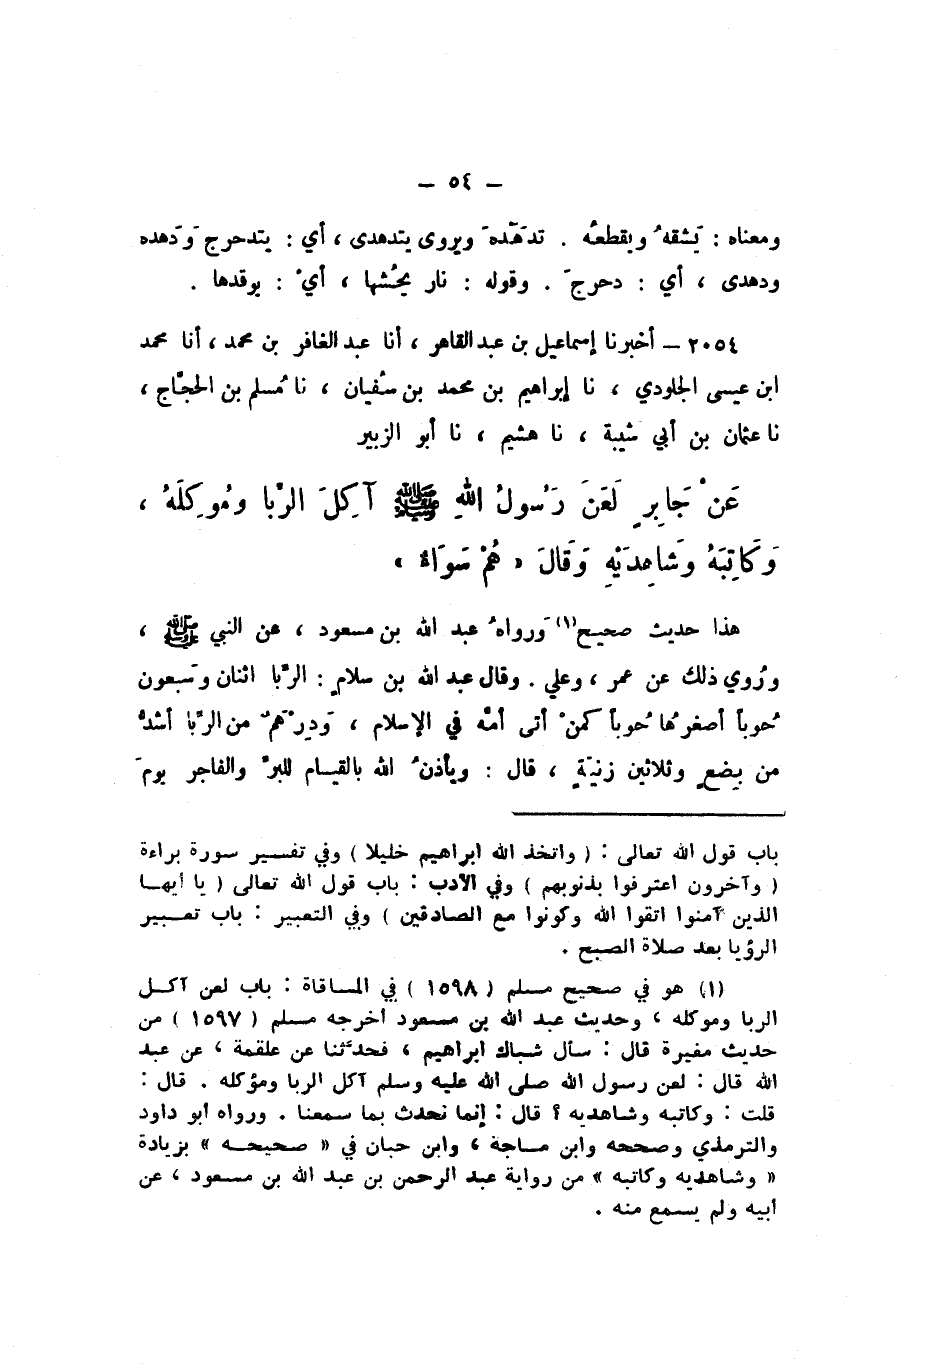 — ٥٤ —
ومعناه : يَشقهُ ويقطعُه . تدَهّدهَ ويروى يتدهدى ، أي : يتدحرج وَدَهده
ودهدى ، أي : دحرجَ . وقوله : نار يحُشها ، أيْ : يوقدها .
٢٠٥٤ – أخبرنا إسماعيل بن عبد القاهر ، أنا عبد الغافر بن محمد ، أنا محمد
ابن عيسى الجلودي ، نا إبراهيم بن محمد بن سُفيان ، نا مُسلم بن الحجّاج ،
نا عثمان بن أبي شيبة ، نا هشيم ، نا أبو الزبير
عَنْ جَابِرٍ لَعَنَ رَسُولُ اللهِ ﷺ آكِلَ الرِّبا ومُوكِلَهُ ،
وَكَاتِبَهُ وَشَاهِدَيْهِ وَقَالَ « هُمْ سَوَاءٌ »
هذا حديث صحيح(١) وَرواهُ عبد الله بن مسعود ، عن النبي ﷺ ،
ورُوي ذلك عن عمر ، وعلي . وقال عبد الله بن سلامٍ : الرِّبا اثنان وسَبعون
حُوباً أصغرُها حُوباً كمنْ أتى أمَّه في الإسلام ، وَدِرْهَمٌ من الرِّبا أشدُّ
من بِضعٍ وثلاثين زنيَةٍ ، قال : ويأذنُ الله بالقيام للبرِّ والفاجر يومَ
باب قول الله تعالى : ( واتخذ الله ابراهيم خليلا ) وفي تفسير سورة براءة
( وآخرون اعترفوا بذنوبهم ) وفي الأدب : باب قول الله تعالى ( يا أيها
الذين آمنوا اتقوا الله وكونوا مع الصادقين ) وفي التعبير : باب تعبير
الرؤيا بعد صلاة الصبح .
(١) هو في صحيح مسلم ( ١٥٩٨ ) في المساقاة : باب لعن آكل
الربا وموكله ، وحديث عبد الله بن مسعود أخرجه مسلم ( ١٥٩٧ ) من
حديث مغيرة قال : سأل شباك ابراهيم ، فحدثنا عن علقمة ، عن عبد
الله قال : لعن رسول الله صلى الله عليه وسلم آكل الربا ومؤكله . قال :
قلت : وكاتبه وشاهديه ؟ قال : إنما نحدث بما سمعنا . ورواه أبو داود
والترمذي وصححه وابن ماجة ، وابن حبان في « صحيحه » بزيادة
« وشاهديه وكاتبه » من رواية عبد الرحمن بن عبد الله بن مسعود ، عن
أبيه ولم يسمع منه .